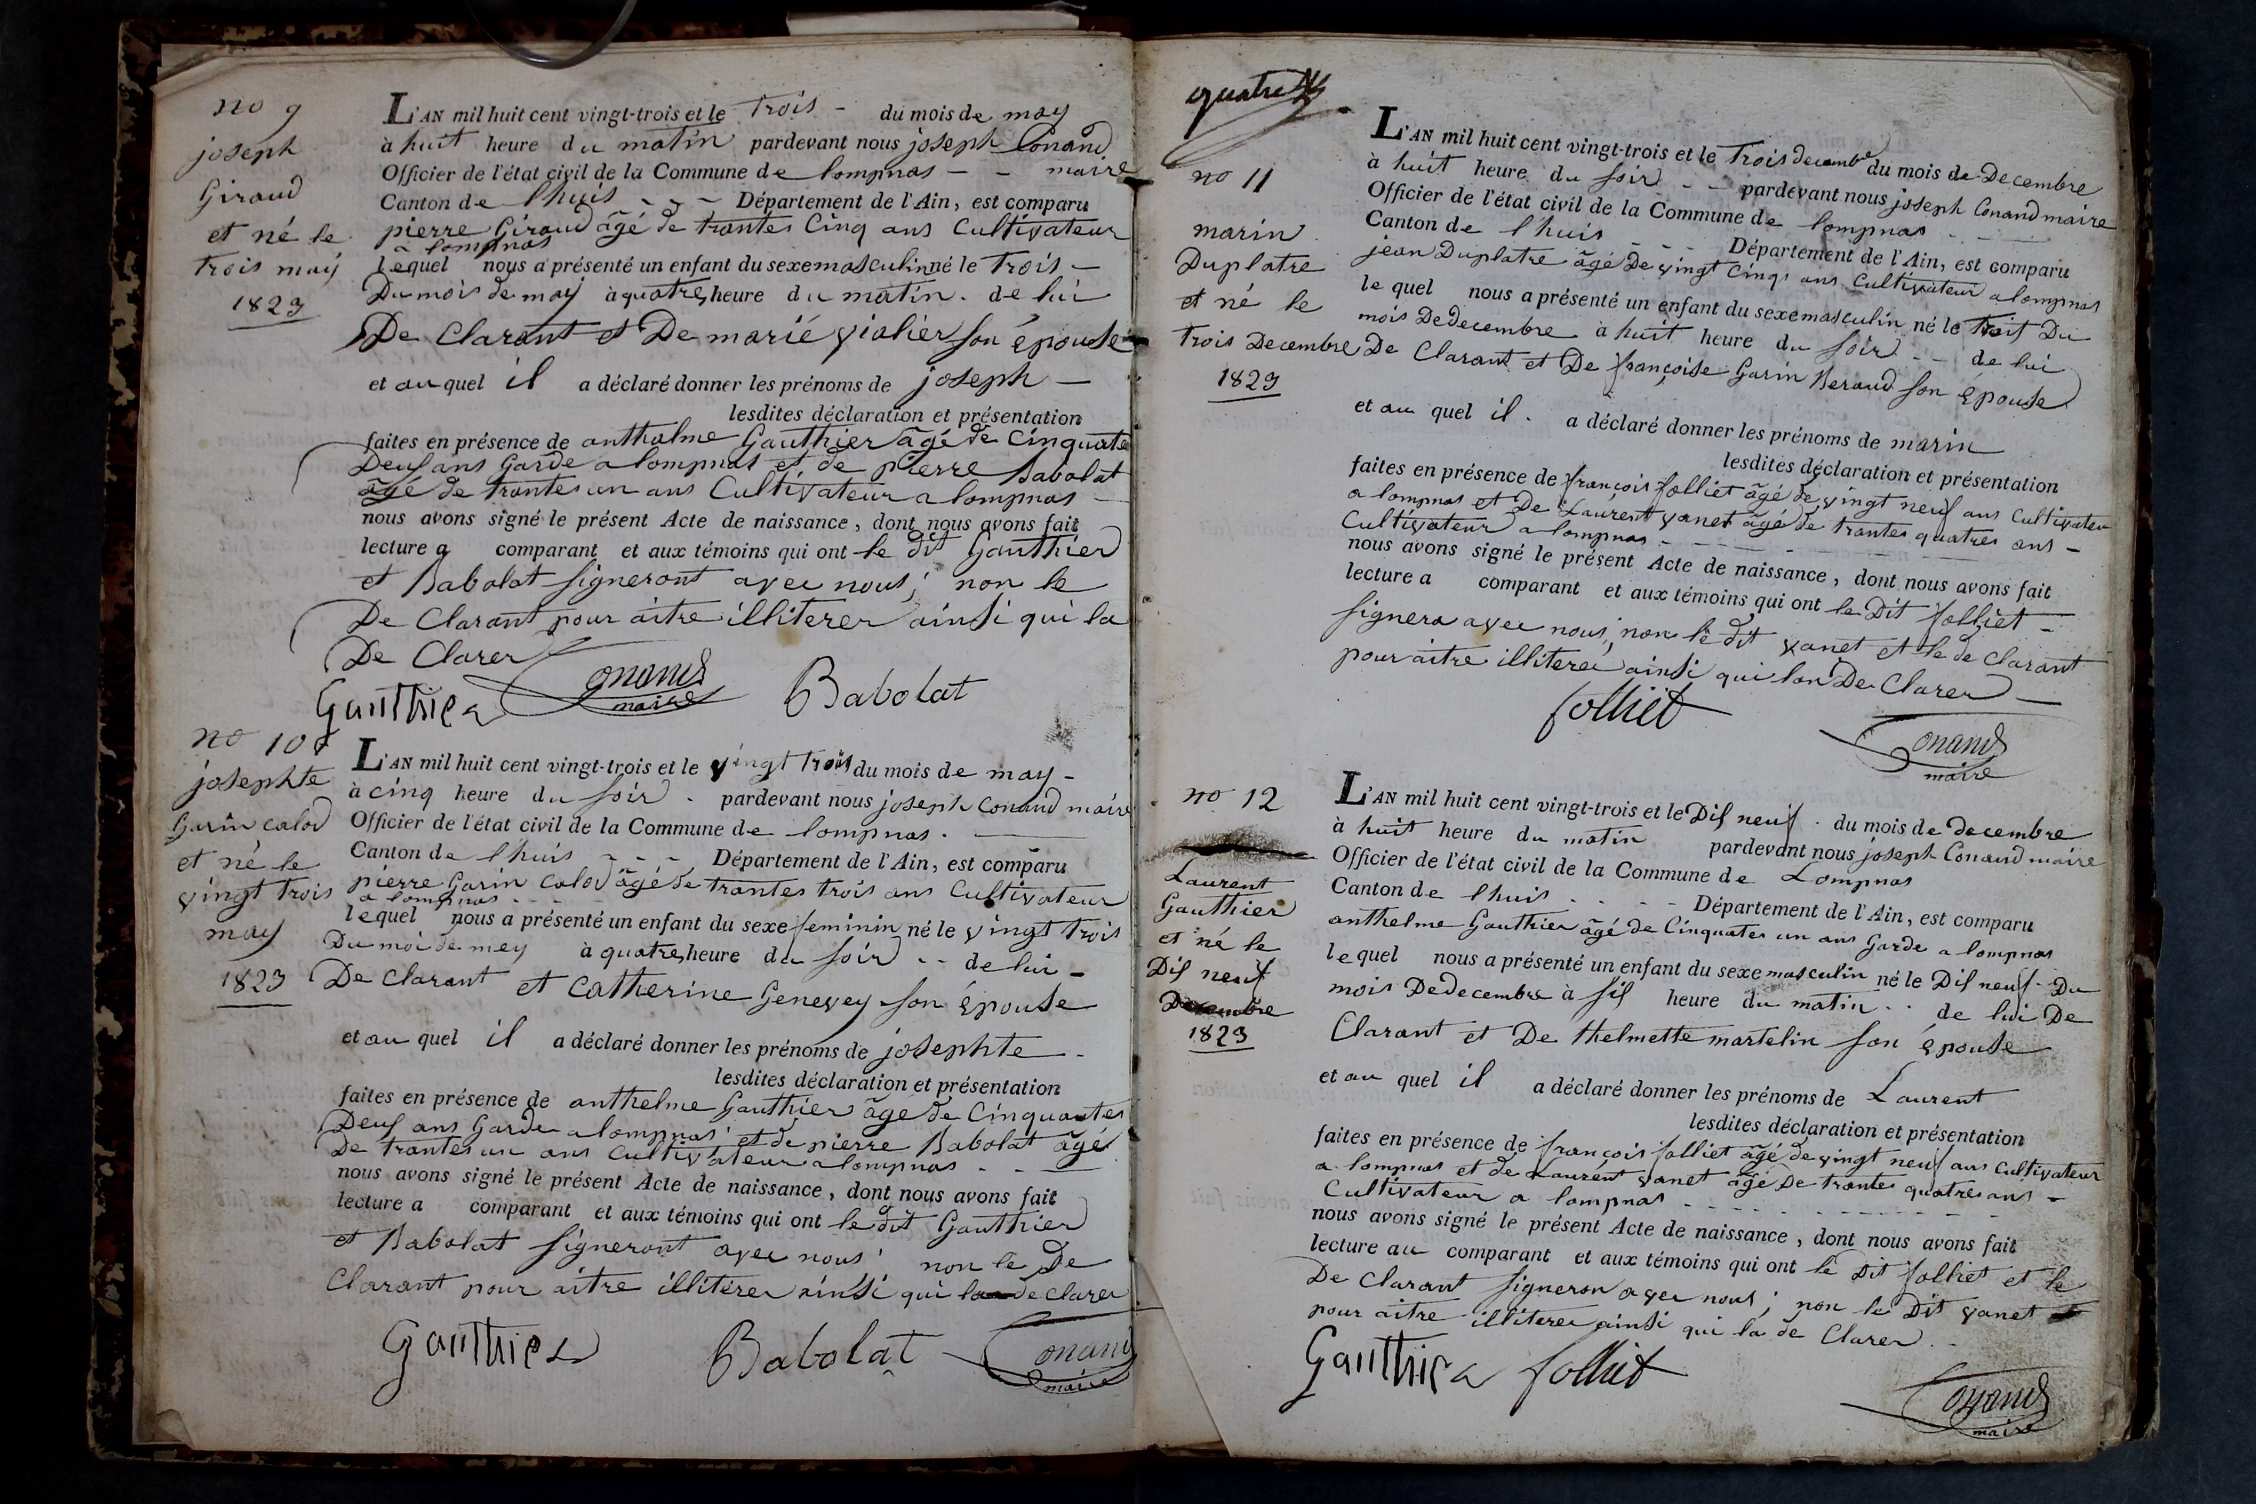 no 9
joseph
Giraud
et né le
trois may
1823
L'AN mil huit cent vingt-trois et le trois - du mois de may
à huit heure du matin pardevant nous joseph Conand
Officier de l'état civil de la Commune de lompnas - - maire
Canton de lhuis - - - Département de l'Ain, est comparu
pierre Giraud âgé de trantes Cinq ans Cultivateur
a lompnas
lequel nous a présenté un enfant du sexe masculin né le trois -
Du mois de may à quatres heure du matin. de lui
De Clarant et De marié vialier son épouse
et au quel il a déclaré donner les prénoms de joseph -
lesdites déclaration et présentation
faites en présence de anthalme Gauthier âgé de Cinquate
Deuf ans Garde a lompnas et de pierre Babolat
âgé de trantes un ans Cultivateur a lompnas -
nous avons signé le présent Acte de naissance, dont nous avons fait
lecture a comparant et aux témoins qui ont le dit Gauthier
et Babolat signeront avec nous; non le
De Clarant pour aitre illiterer ainsi qui la
De Clarer
Conand
maire
Gauthier Babolat
no 10
josephte
Garin calod
et né le
vingt trois
may
1823
L'AN mil huit cent vingt-trois et le vingt trois du mois de may -
à cinq heure du soir - pardevant nous joseph Conand maire
Officier de l'état civil de la Commune de lompnas.
Canton de lhuis - - - Département de l'Ain, est comparu
pierre Garin Calod âgé de trantes trois ans Cultivateur
a lompnas - - -
lequel nous a présenté un enfant du sexe feminin né le vingt trois
Du moi de mey à quatres heure du soir - - de lui -
De Clarant et Catherine Genevey son épouse
et au quel il a déclaré donner les prénoms de josephte -
lesdites déclaration et présentation
faites en présence de anthelme Gauthier âgé de Cinquantes
Deuf ans Garde a lompnas et de pierre Babolat âgé
De trantes un ans Cultivateur a lompnas - - -
nous avons signé le présent Acte de naissance, dont nous avons fait
lecture a comparant et aux témoins qui ont le dit Gauthier
et Babolat signeront avec nous; non le De
Clarant pour aitre illiterer ainsi qui la de clarer
Gauthier Babolat Conand
maire
quatre
no 11
marin
Duplatre
et né le
trois Decembre
1823
L'AN mil huit cent vingt-trois et le trois decembe du mois de Decembre
à huit heure du soir - - pardevant nous joseph Conand maire
Officier de l'état civil de la Commune de lompnas - -
Canton de lhuis - - - Département de l'Ain, est comparu
jean Duplatre âgé De vingt Cinq ans Cultivateur a lompnas
le quel nous a présenté un enfant du sexe masculin né le trois Du
mois De decembre à huit heure du soir - - de lui
De Clarant et De françoise Garin Beraud son épouse
et au quel il. a déclaré donner les prénoms de marin
lesdites déclaration et présentation
faites en présence de françois folliet âgé de vingt neuf ans Cultivateu
a lompnas et De Laurent vanet âgé de trantes quatres ans -
Cultivateur a lompnas - - - - -
nous avons signé le présent Acte de naissance, dont nous avons fait
lecture a comparant et aux témoins qui ont le Dit folliet -
signera avec nous; non le dit vanet et le de clarant
pour aitre illiterei ainsi qui lon De Clarer
folliet
Conand
maire
no 12
Laurent
Gauthier
et né le
Dif neuf
Decembre
1823
L'AN mil huit cent vingt-trois et le Dif neuf . du mois de decembre
à huit heure du matin pardevant nous joseph Conand maire
Officier de l'état civil de la Commune de Lompnas
Canton de lhuis - - - - Département de l'Ain, est comparu
anthelme Gauthier âgé de Cinquates un ans Garde a lompnas
lequel nous a présenté un enfant du sexe masculin né le Dif neuf. Du
mois De decembre à sif heure du matin - - de lui De
Clarant et De thelmette martelin son épouse
et au quel il a déclaré donner les prénoms de Laurent
lesdites déclaration et présentation
faites en présence de françois folliet âgé de vingt neuf ans Cultivateur
a lompnas et de Laurent vanet âgé De trantes quatres ans -
Cultivateur a lompnas - - - - -
nous avons signé le présent Acte de naissance, dont nous avons fait
lecture au comparant et aux témoins qui ont le Dit folliet et le
De Clarant signeron avec nous; non le Dit vanet
pour aitre illiterer ainsi qui la de Clarer - -
Gauthier folliet
Conand
maire